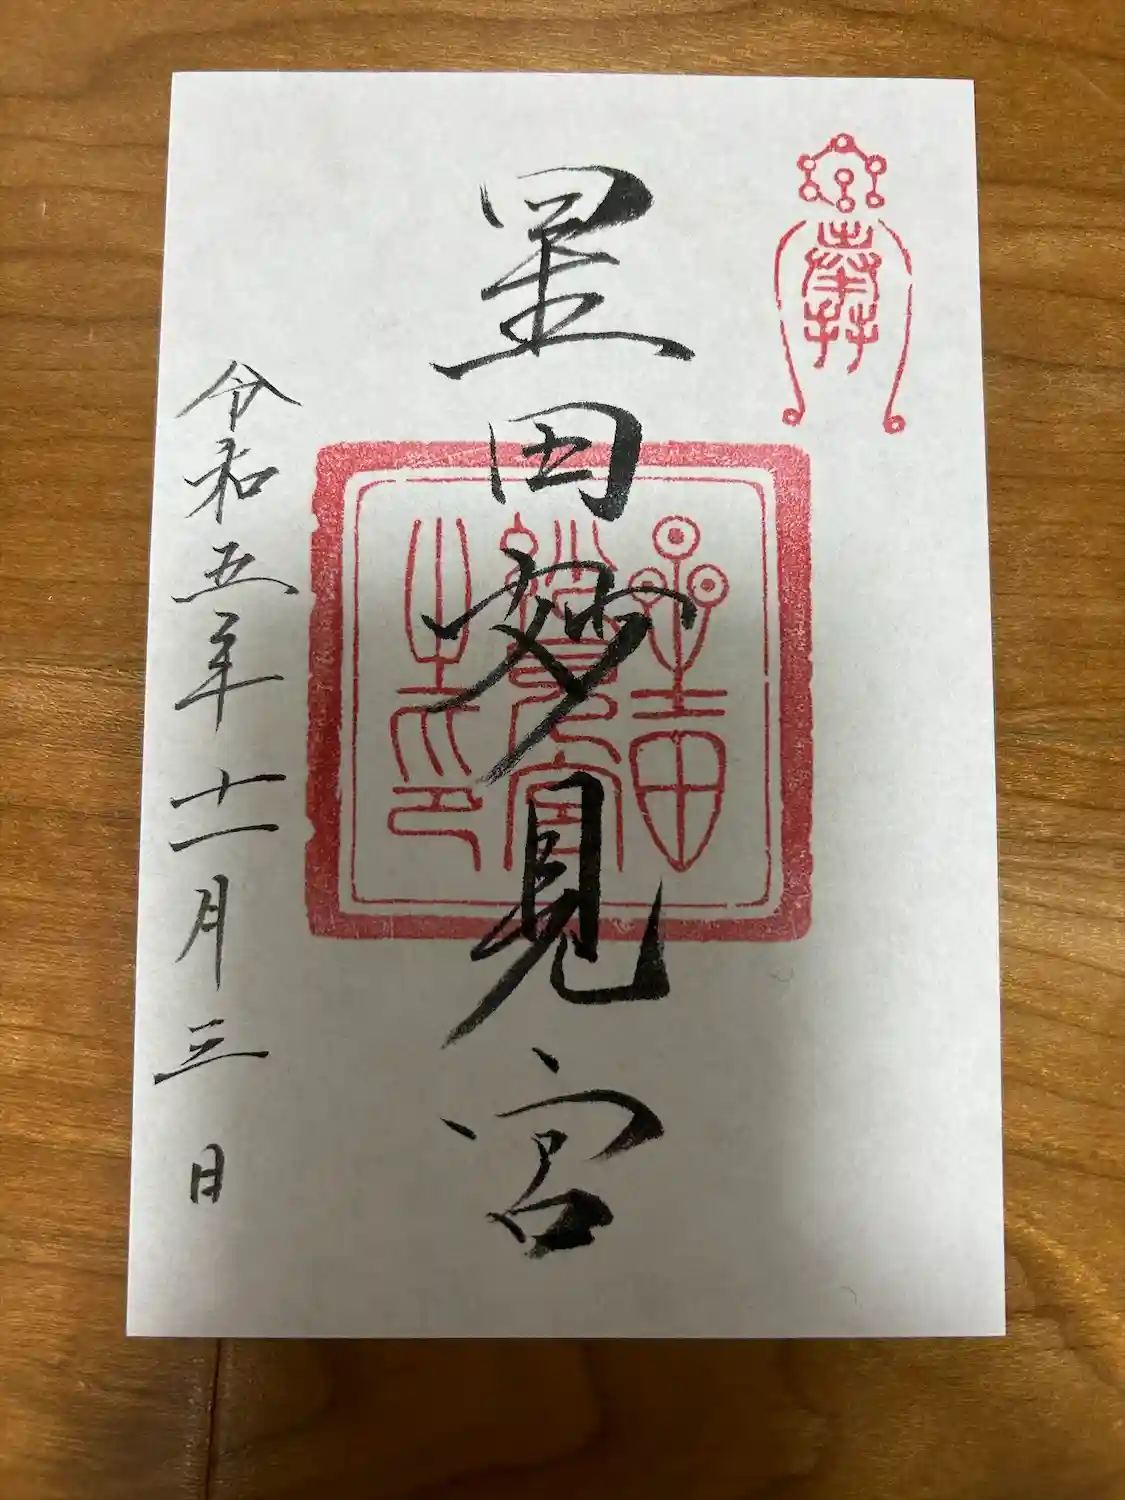 星田妙見宮
星田
妙見宮
之印
令和五年十一月三日